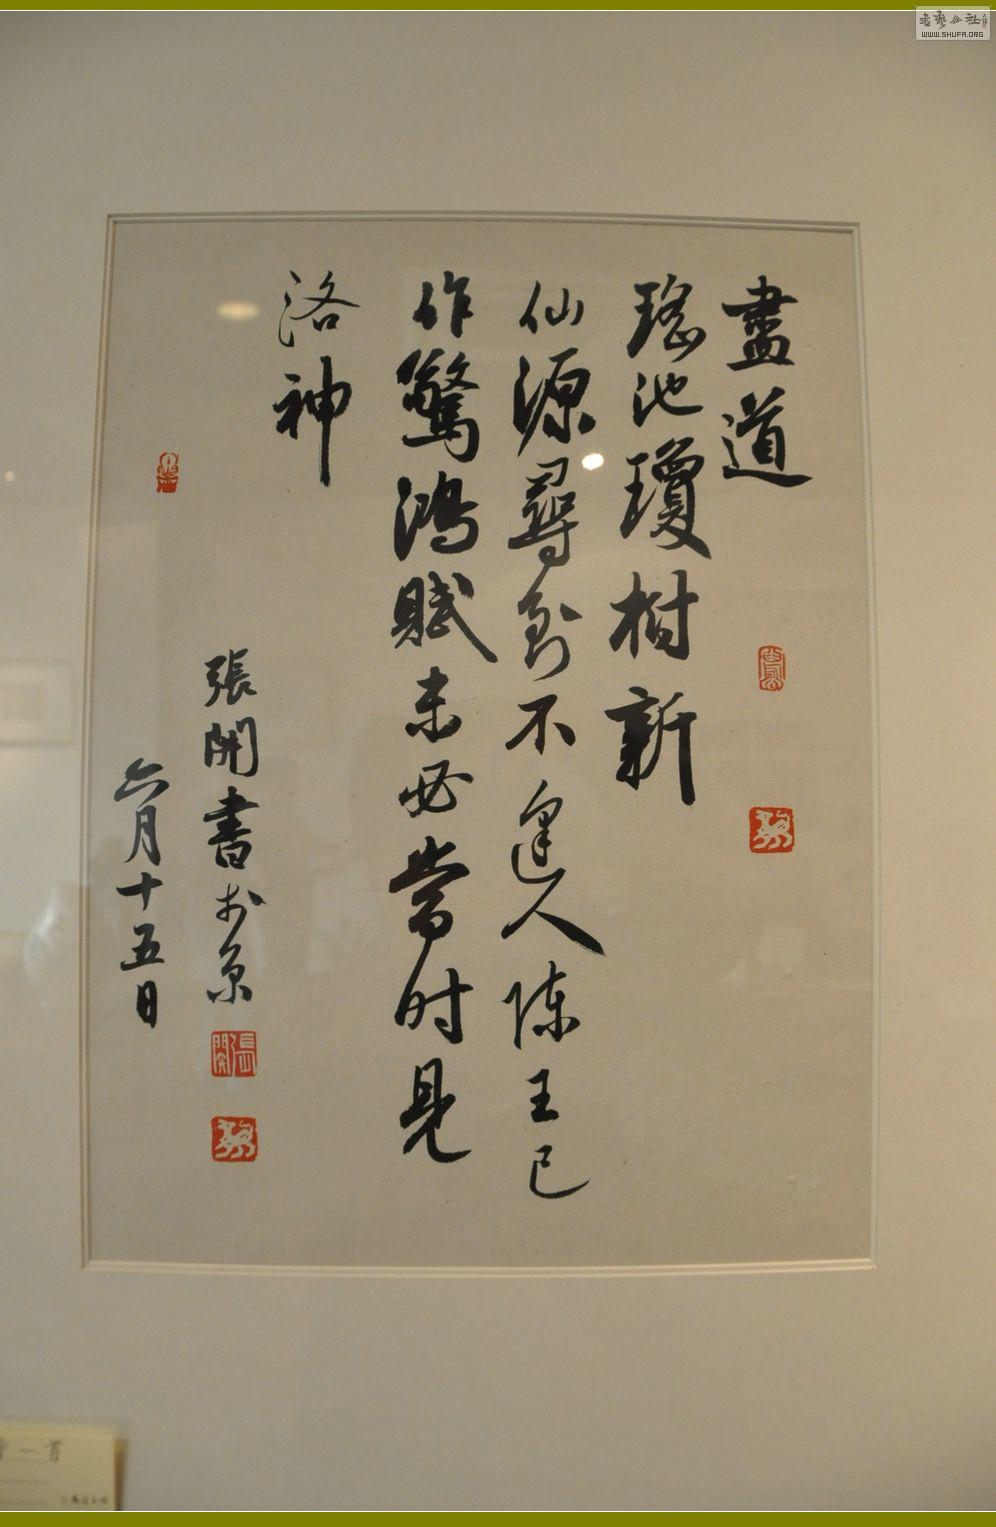 盡道
瑤池瓊樹新
仙源尋到不逢人陳王已
作驚鴻賦未必當时見
洛神
張開書於京
六月十五日
張開
一首
WWW.SHUFA.ORG